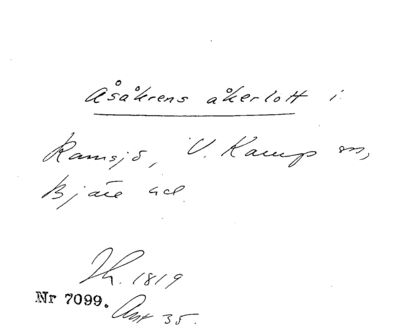 Åsåkrens åkerlott i
Ramsjö, V. Karup sn,
Bjäre hd
Lh. 1819
Nr 7099.
Ant 35.